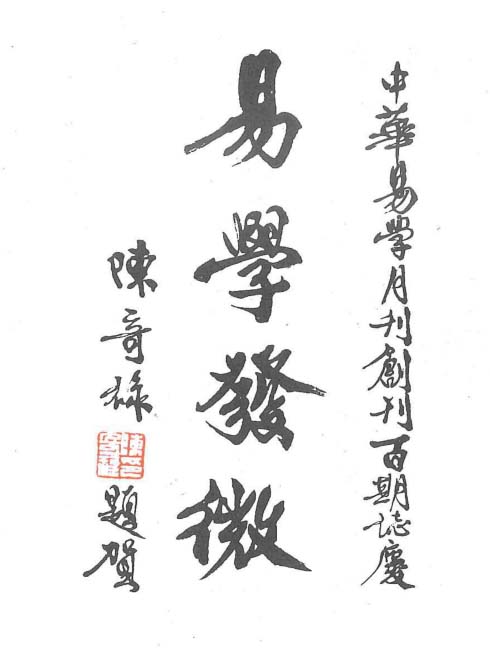 中華易學月刊創刊百期誌慶
易學發微
陳奇祿
題賀